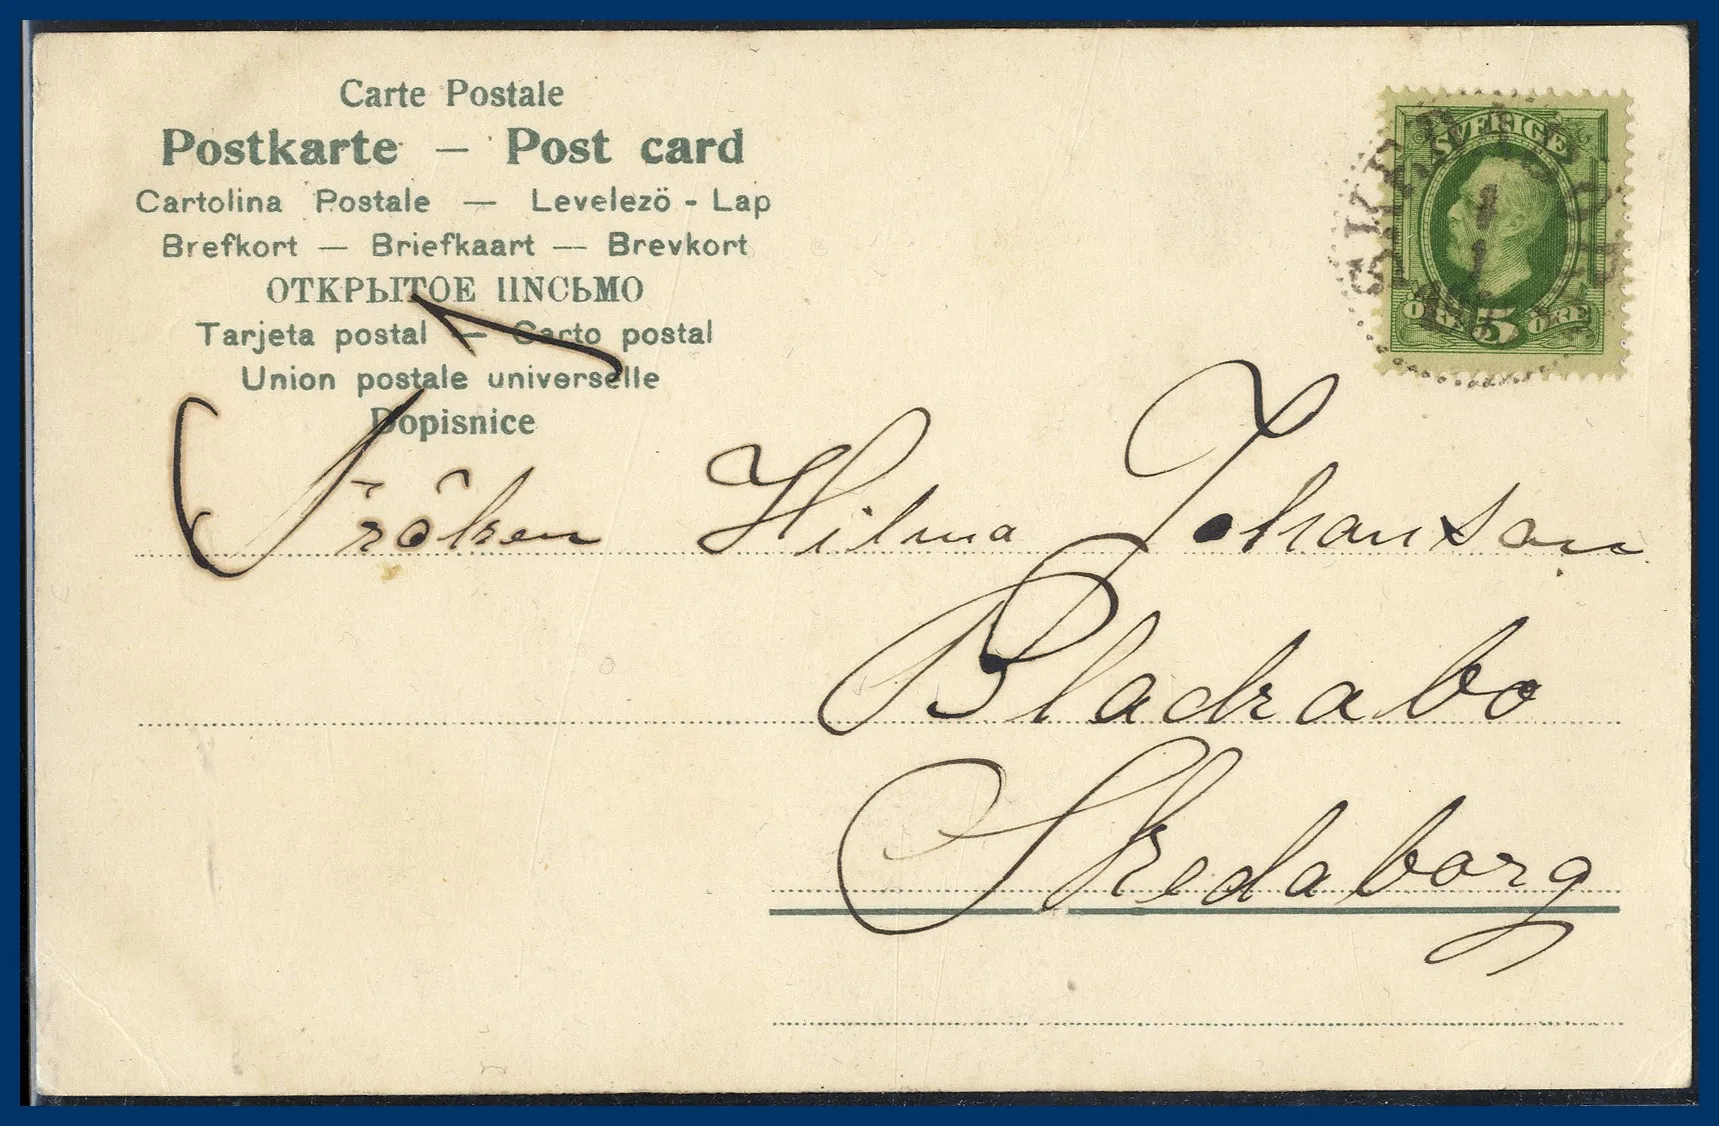 Carte Postale
Postkarte — Post card
Cartolina Postale — Levelezö - Lap
Brefkort — Briefkaart — Brevkort
ОТКРЫТОЕ ПИСЬМО
Tarjeta postal — Carto postal
Union postale universelle
Dopisnice
SVERIGE
ÖRE 5 ÖRE
Fröken Hilma Johanson
Blackabo
Skedaborg